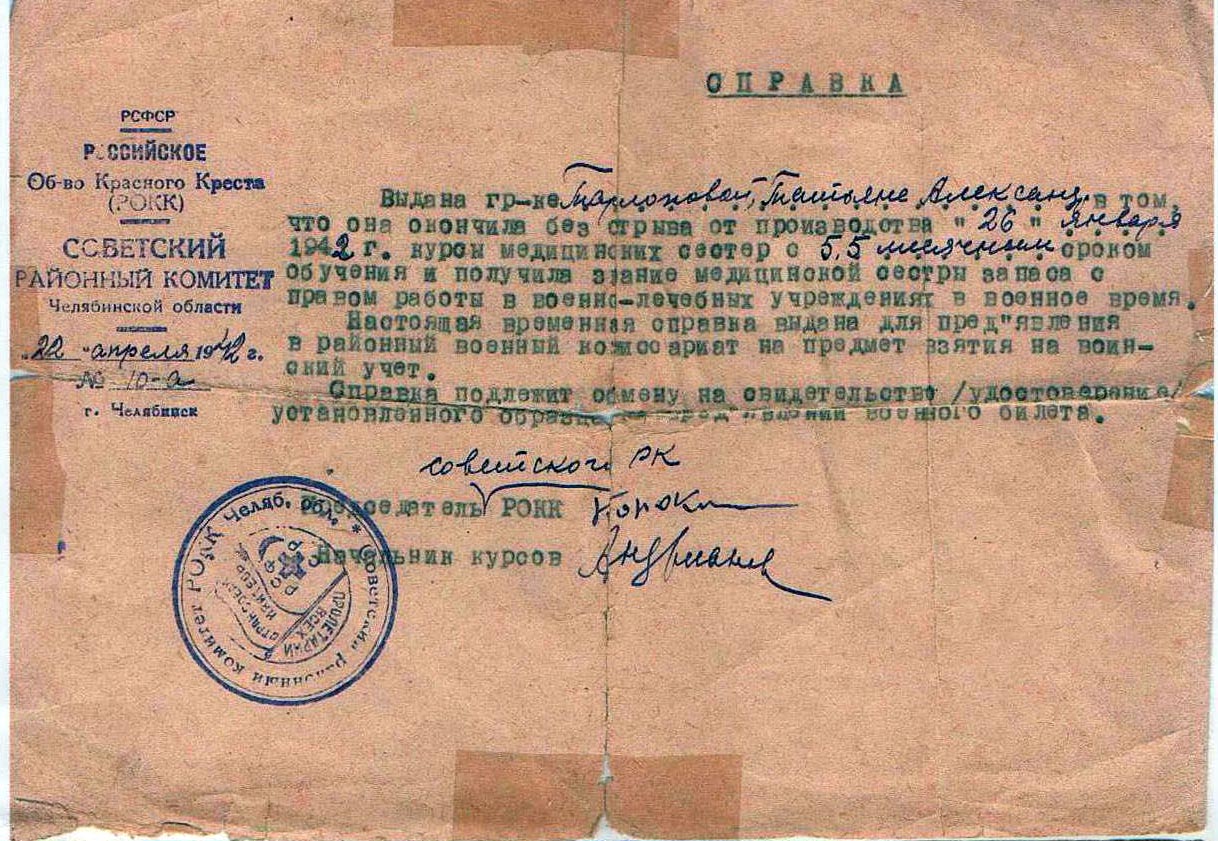 СПРАВКА
РСФСР
РОССИЙСКОЕ
Об-во Красного Креста
(РОКК)
СОВЕТСКИЙ
РАЙОННЫЙ КОМИТЕТ
Челябинской области
"22" апреля 1942 г.
№ 10-а
г. Челябинск
Выдана гр-ке Татьяне Александ. в том,
что она окончила без отрыва от производства "26" января
1942 г. курсы медицинских сестер с 5,5 месячным сроком
обучения и получила звание медицинской сестры запаса с
правом работы в военно-лечебных учреждениях в военное время.
Настоящая временная справка выдана для пред"явления
в районный военный комиссариат на предмет взятия на воин-
ский учет.
Справка подлежит обмену на свидетельство /удостоверение/
установленного образца пред"явлении военного билета.
советского РК
Председатель РОКК
Начальник курсов
* Советский районный комитет РОКК Челяб. обл.
РСФСР
ПРОЛЕТАРИИ
ВСЕХ
СТРАН